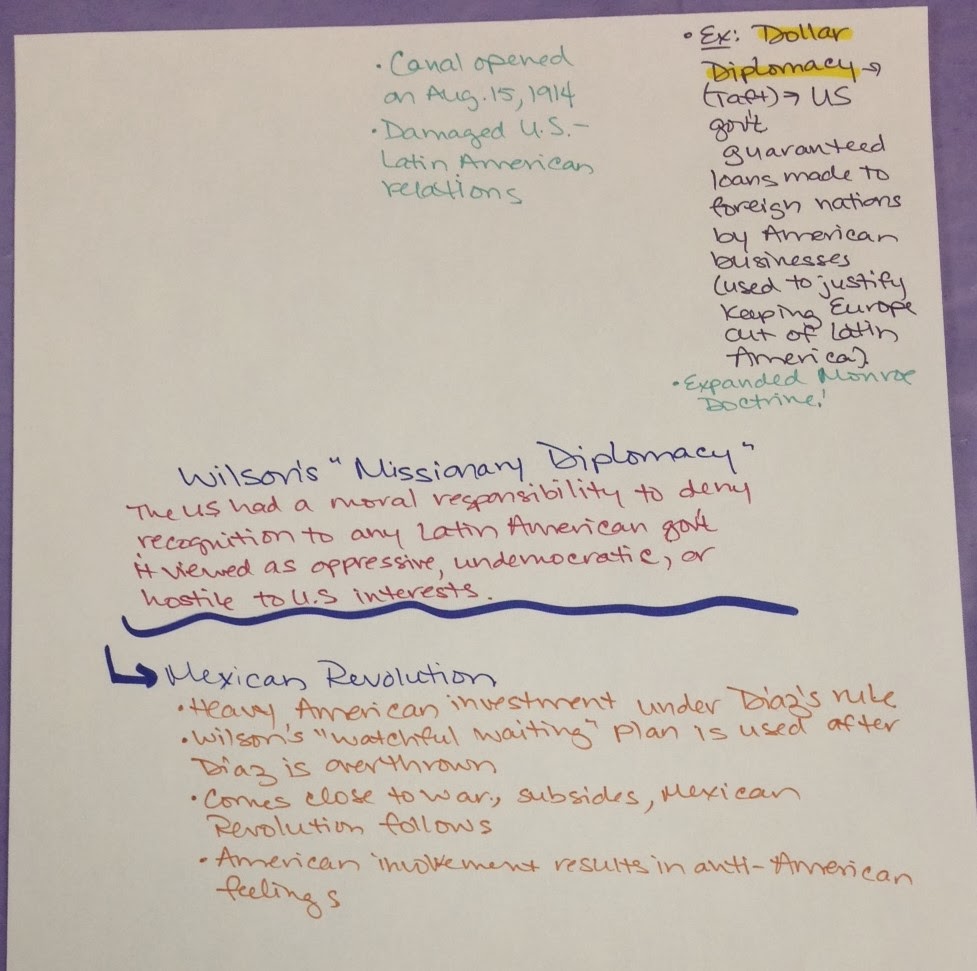 • Canal opened
on Aug. 15, 1914
• Damaged U.S.-
Latin American
relations
• Ex: Dollar
Diplomacy →
(Taft) → US
gov't
guaranteed
loans made to
foreign nations
by American
businesses
(used to justify
keeping Europe
out of Latin
America).
• Expanded Monroe
Doctrine!
Wilson's "Missionary Diplomacy"
The US had a moral responsibility to deny
recognition to any Latin American gov't
it viewed as oppressive, undemocratic, or
hostile to U.S interests.
↳ Mexican Revolution
• Heavy American investment under Díaz's rule
• Wilson's "watchful waiting" plan is used after
Díaz is overthrown
• Comes close to war, subsides, Mexican
Revolution follows
• American involvement results in anti-American
feelings